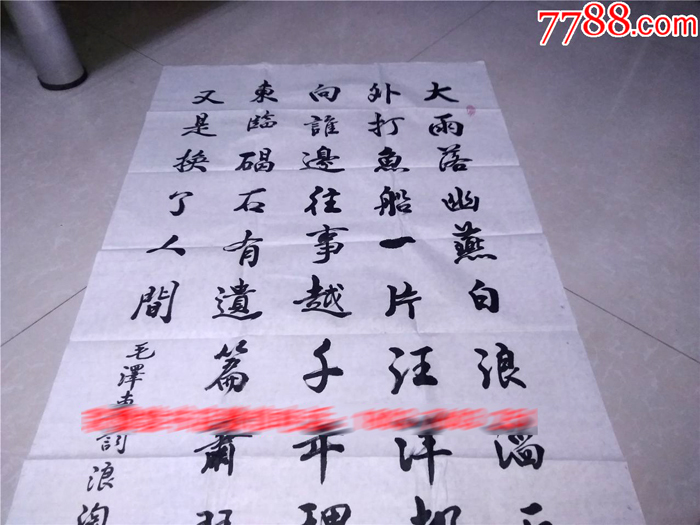 7788.com
大雨落幽燕白浪滔天
外打魚船一片汪洋都
向誰邊往事越千年
東臨碣石有遺篇蕭瑟
又是换了人間
毛澤東詞浪淘